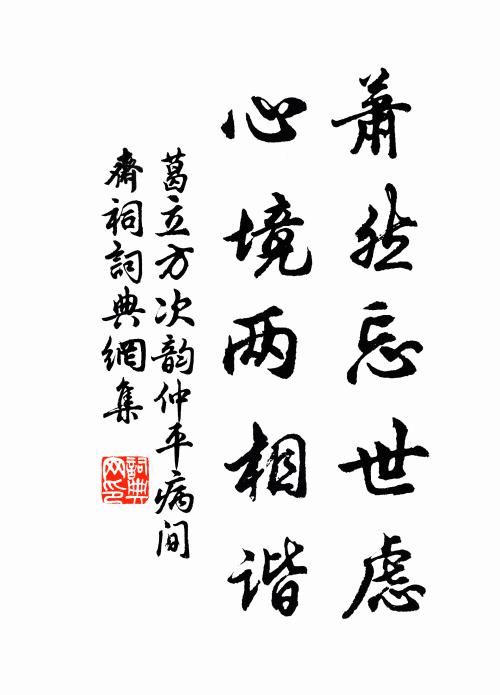 萧然忘世虑
心境两相谐
葛立方次韵仲平病间
齋祠詞典網集
詞典网印